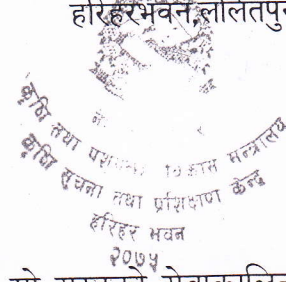 हरिहरभवन,ललितपु
कृषि तथा पशुपन्छी विकास मन्त्रालय
कृषि सूचना तथा प्रशिक्षण केन्द्र
हरिहर भवन
२०७५